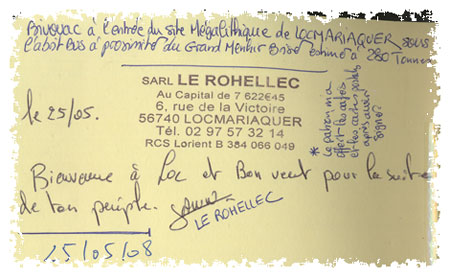 Bivouac à l'entrée du site Mégalithique de LOCMARIAQUER sous
l'abot Bus à proximité du Grand Menhir Brisé estimé à 280 Tonnes
SARL LE ROHELLEC
Au Capital de 7 622€45
6, rue de la Victoire
56740 LOCMARIAQUER
Tél. 02 97 57 32 14
RCS Lorient B 384 066 049
le 25/05.
* Le patron m'a
offert les cafés
et les cartes postales
après avoir
signé
Bienvenue à Loc et Bon vent pour la suite
de ton périple.
LE ROHELLEC
25/05/08